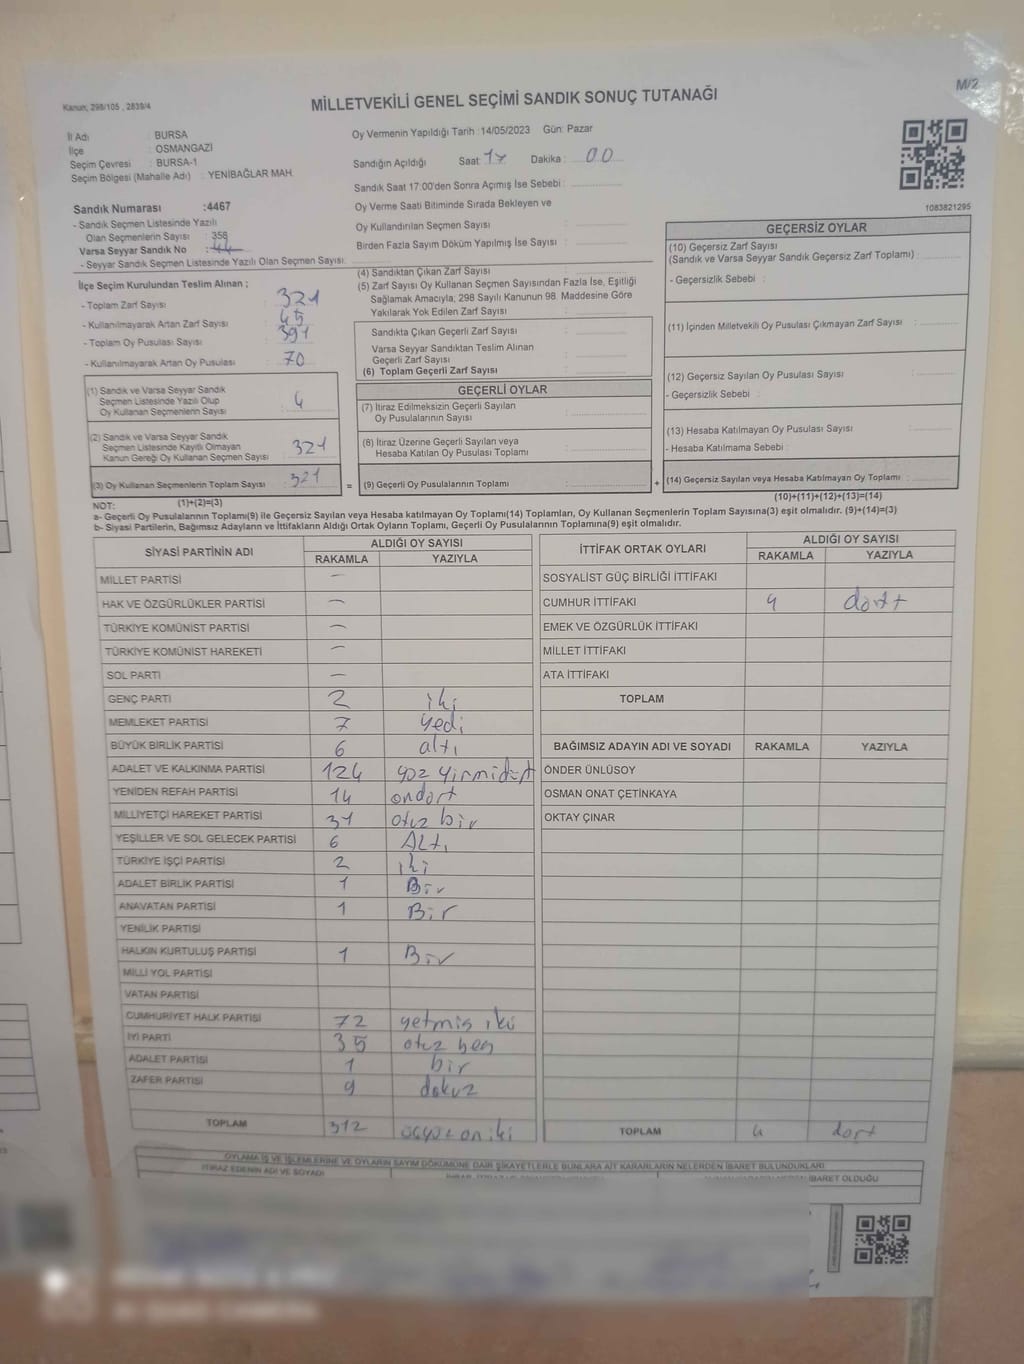 M/2
Kanun; 298/105 , 2839/4
MİLLETVEKİLİ GENEL SEÇİMİ SANDIK SONUÇ TUTANAĞI
İl Adı : BURSA
İlçe : OSMANGAZİ
Seçim Çevresi : BURSA-1
Seçim Bölgesi (Mahalle Adı) : YENİBAĞLAR MAH.
Sandık Numarası :4467
- Sandık Seçmen Listesinde Yazılı
Olan Seçmenlerin Sayısı : 358
Varsa Seyyar Sandık No :
- Seyyar Sandık Seçmen Listesinde Yazılı Olan Seçmen Sayısı:
Oy Vermenin Yapıldığı Tarih :14/05/2023 Gün: Pazar
Sandığın Açıldığı Saat: 17 Dakika : 00
Sandık Saat 17:00'den Sonra Açımış İse Sebebi :
Oy Verme Saati Bitiminde Sırada Bekleyen ve
Oy Kullandırılan Seçmen Sayısı :
Birden Fazla Sayım Döküm Yapılmış İse Sayısı :
1083821295
İlçe Seçim Kurulundan Teslim Alınan ;
- Toplam Zarf Sayısı : 321
- Kullanılmayarak Artan Zarf Sayısı : 45
- Toplam Oy Pusulası Sayısı : 391
- Kullanılmayarak Artan Oy Pusulası : 70
(1) Sandık ve Varsa Seyyar Sandık
Seçmen Listesinde Yazılı Olup
Oy Kullanan Seçmenlerin Sayısı : 4
(2) Sandık ve Varsa Seyyar Sandık
Seçmen Listesinde Kayıtlı Olmayan
Kanun Gereği Oy Kullanan Seçmen Sayısı : 321
(3) Oy Kullanan Seçmenlerin Toplam Sayısı : 321
(1)+(2)=(3)
(4) Sandıktan Çıkan Zarf Sayısı :
(5) Zarf Sayısı Oy Kullanan Seçmen Sayısından Fazla İse, Eşitliği
Sağlamak Amacıyla, 298 Sayılı Kanunun 98. Maddesine Göre
Yakılarak Yok Edilen Zarf Sayısı :
Sandıkta Çıkan Geçerli Zarf Sayısı :
Varsa Seyyar Sandıktan Teslim Alınan
Geçerli Zarf Sayısı :
(6) Toplam Geçerli Zarf Sayısı :
GEÇERLİ OYLAR
(7) İtiraz Edilmeksizin Geçerli Sayılan
Oy Pusulalarının Sayısı :
(8) İtiraz Üzerine Geçerli Sayılan veya
Hesaba Katılan Oy Pusulası Toplamı :
= (9) Geçerli Oy Pusulalarının Toplamı :
GEÇERSİZ OYLAR
(10) Geçersiz Zarf Sayısı
(Sandık ve Varsa Seyyar Sandık Geçersiz Zarf Toplamı) :
- Geçersizlik Sebebi :
(11) İçinden Milletvekili Oy Pusulası Çıkmayan Zarf Sayısı :
(12) Geçersiz Sayılan Oy Pusulası Sayısı :
- Geçersizlik Sebebi :
(13) Hesaba Katılmayan Oy Pusulası Sayısı :
- Hesaba Katılmama Sebebi :
+ (14) Geçersiz Sayılan veya Hesaba Katılmayan Oy Toplamı :
(10)+(11)+(12)+(13)=(14)
NOT:
a- Geçerli Oy Pusulalarının Toplamı(9) ile Geçersiz Sayılan veya Hesaba katılmayan Oy Toplamı(14) Toplamları, Oy Kullanan Seçmenlerin Toplam Sayısına(3) eşit olmalıdır. (9)+(14)=(3)
b- Siyasi Partilerin, Bağımsız Adayların ve İttifakların Aldığı Ortak Oyların Toplamı, Geçerli Oy Pusulalarının Toplamına(9) eşit olmalıdır.
SİYASİ PARTİNİN ADI ALDIĞI OY SAYISI
RAKAMLA YAZIYLA
MİLLET PARTİSİ —
HAK VE ÖZGÜRLÜKLER PARTİSİ —
TÜRKİYE KOMÜNİST PARTİSİ —
TÜRKİYE KOMÜNİST HAREKETİ —
SOL PARTİ —
GENÇ PARTİ 2 iki
MEMLEKET PARTİSİ 7 yedi
BÜYÜK BİRLİK PARTİSİ 6 altı
ADALET VE KALKINMA PARTİSİ 124 yüz yirmidört
YENİDEN REFAH PARTİSİ 14 ondört
MİLLİYETÇİ HAREKET PARTİSİ 31 otuz bir
YEŞİLLER VE SOL GELECEK PARTİSİ 6 Altı
TÜRKİYE İŞÇİ PARTİSİ 2 iki
ADALET BİRLİK PARTİSİ 1 Bir
ANAVATAN PARTİSİ 1 Bir
YENİLİK PARTİSİ
HALKIN KURTULUŞ PARTİSİ 1 Bir
MİLLİ YOL PARTİSİ
VATAN PARTİSİ
CUMHURİYET HALK PARTİSİ 72 yetmiş iki
İYİ PARTİ 35 otuz beş
ADALET PARTİSİ 1 bir
ZAFER PARTİSİ 9 dokuz
TOPLAM 312 üçyüz on iki
İTTİFAK ORTAK OYLARI ALDIĞI OY SAYISI
RAKAMLA YAZIYLA
SOSYALİST GÜÇ BİRLİĞİ İTTİFAKI
CUMHUR İTTİFAKI 4 dört
EMEK VE ÖZGÜRLÜK İTTİFAKI
MİLLET İTTİFAKI
ATA İTTİFAKI
TOPLAM
BAĞIMSIZ ADAYIN ADI VE SOYADI RAKAMLA YAZIYLA
ÖNDER ÜNLÜSOY
OSMAN ONAT ÇETİNKAYA
OKTAY ÇINAR
TOPLAM 4 dört
OYLAMA İŞ VE İŞLEMLERİNE VE OYLARIN SAYIM DÖKÜMÜNE DAİR ŞİKAYETLERLE BUNLARA AİT KARARLARIN NELERDEN İBARET BULUNDUKLARI
İTİRAZ EDENİN ADI VE SOYADI
İBARET OLDUĞU